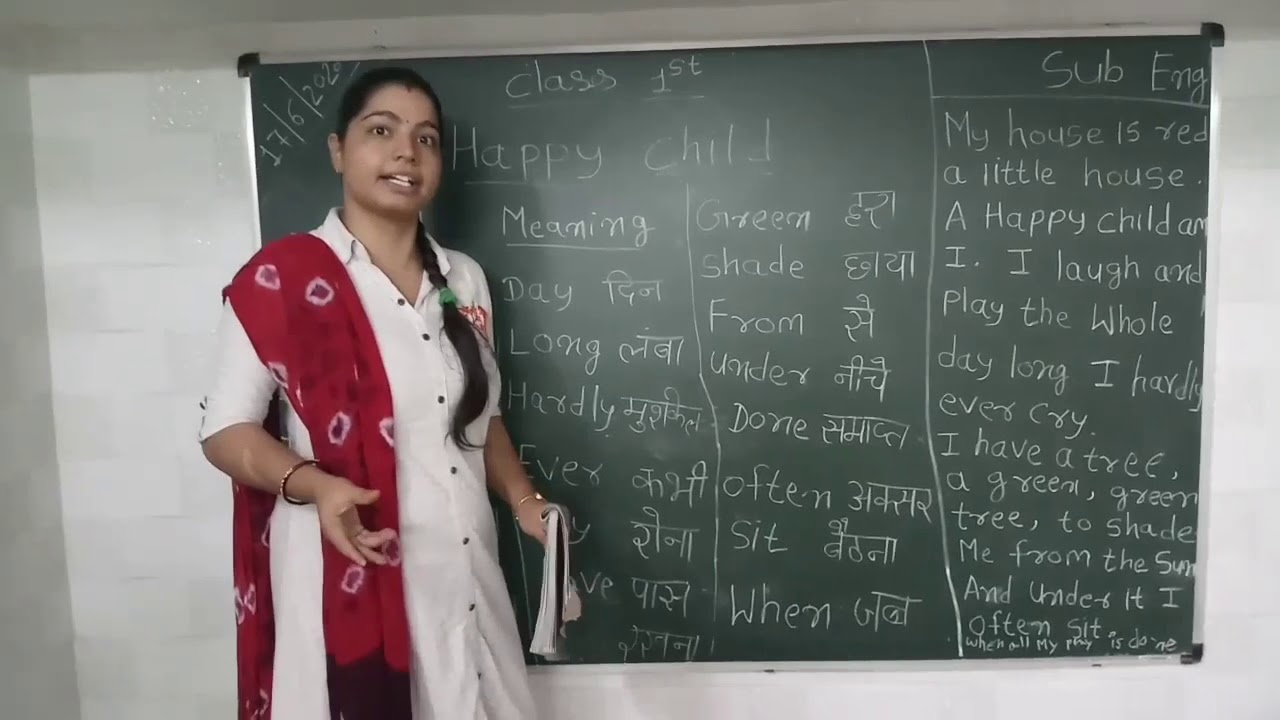 17/6/2020
Class 1st
Sub Eng
Happy Child
Meaning
Day दिन
Long लंबा
Hardly मुश्कील
Ever कभी
रोना
पास
रखना
Green हरा
Shade छाया
From सै
under नीचै
Done समाप्त
often अक्सर
Sit बैठना
When जब
My house is red
a little house.
A Happy child am
I. I laugh and
Play the Whole
day long I hardly
ever cry.
I have a tree,
a green, green
tree, to shade
Me from the Sun
And under it I
often sit.
when all My play is done